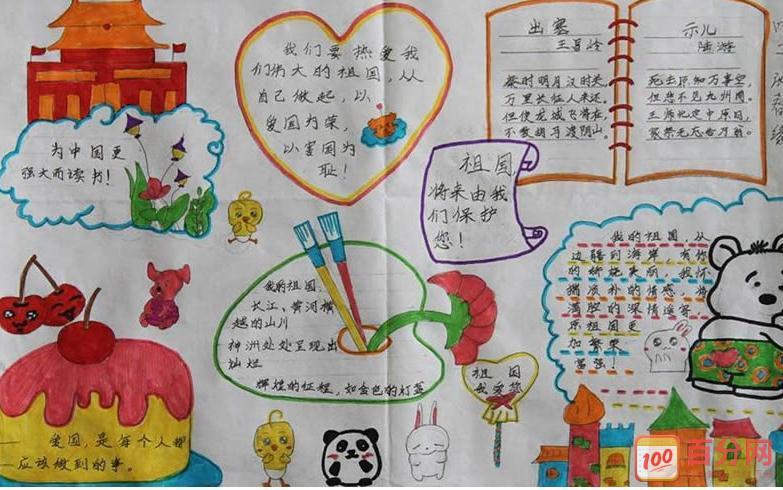 我们要热爱我
们伟大的祖国,从
自己做起,以
爱国为荣,
以害国为
耻!
出塞
王昌龄
秦时明月汉时关,
万里长征人未还。
但使龙城飞将在,
不教胡马渡阴山。
示儿
陆游
死去原知万事空,
但悲不见九州同。
王师北定中原日,
家祭无忘告乃翁。
为中国更
强大而读书!
祖国,
将来由我
们保护
您!
我的祖国,从
边疆到海岸,有你
的娇
质朴的情感,
满腔的深情
祖国更
加繁荣
富强!
我的祖国
长江、黄河横
越的山川
神洲处处呈现出
灿烂
辉煌的征程,如金色的灯盏
祖国
我爱您
爱国,是每个人都
应该做到的事。
100
百分网